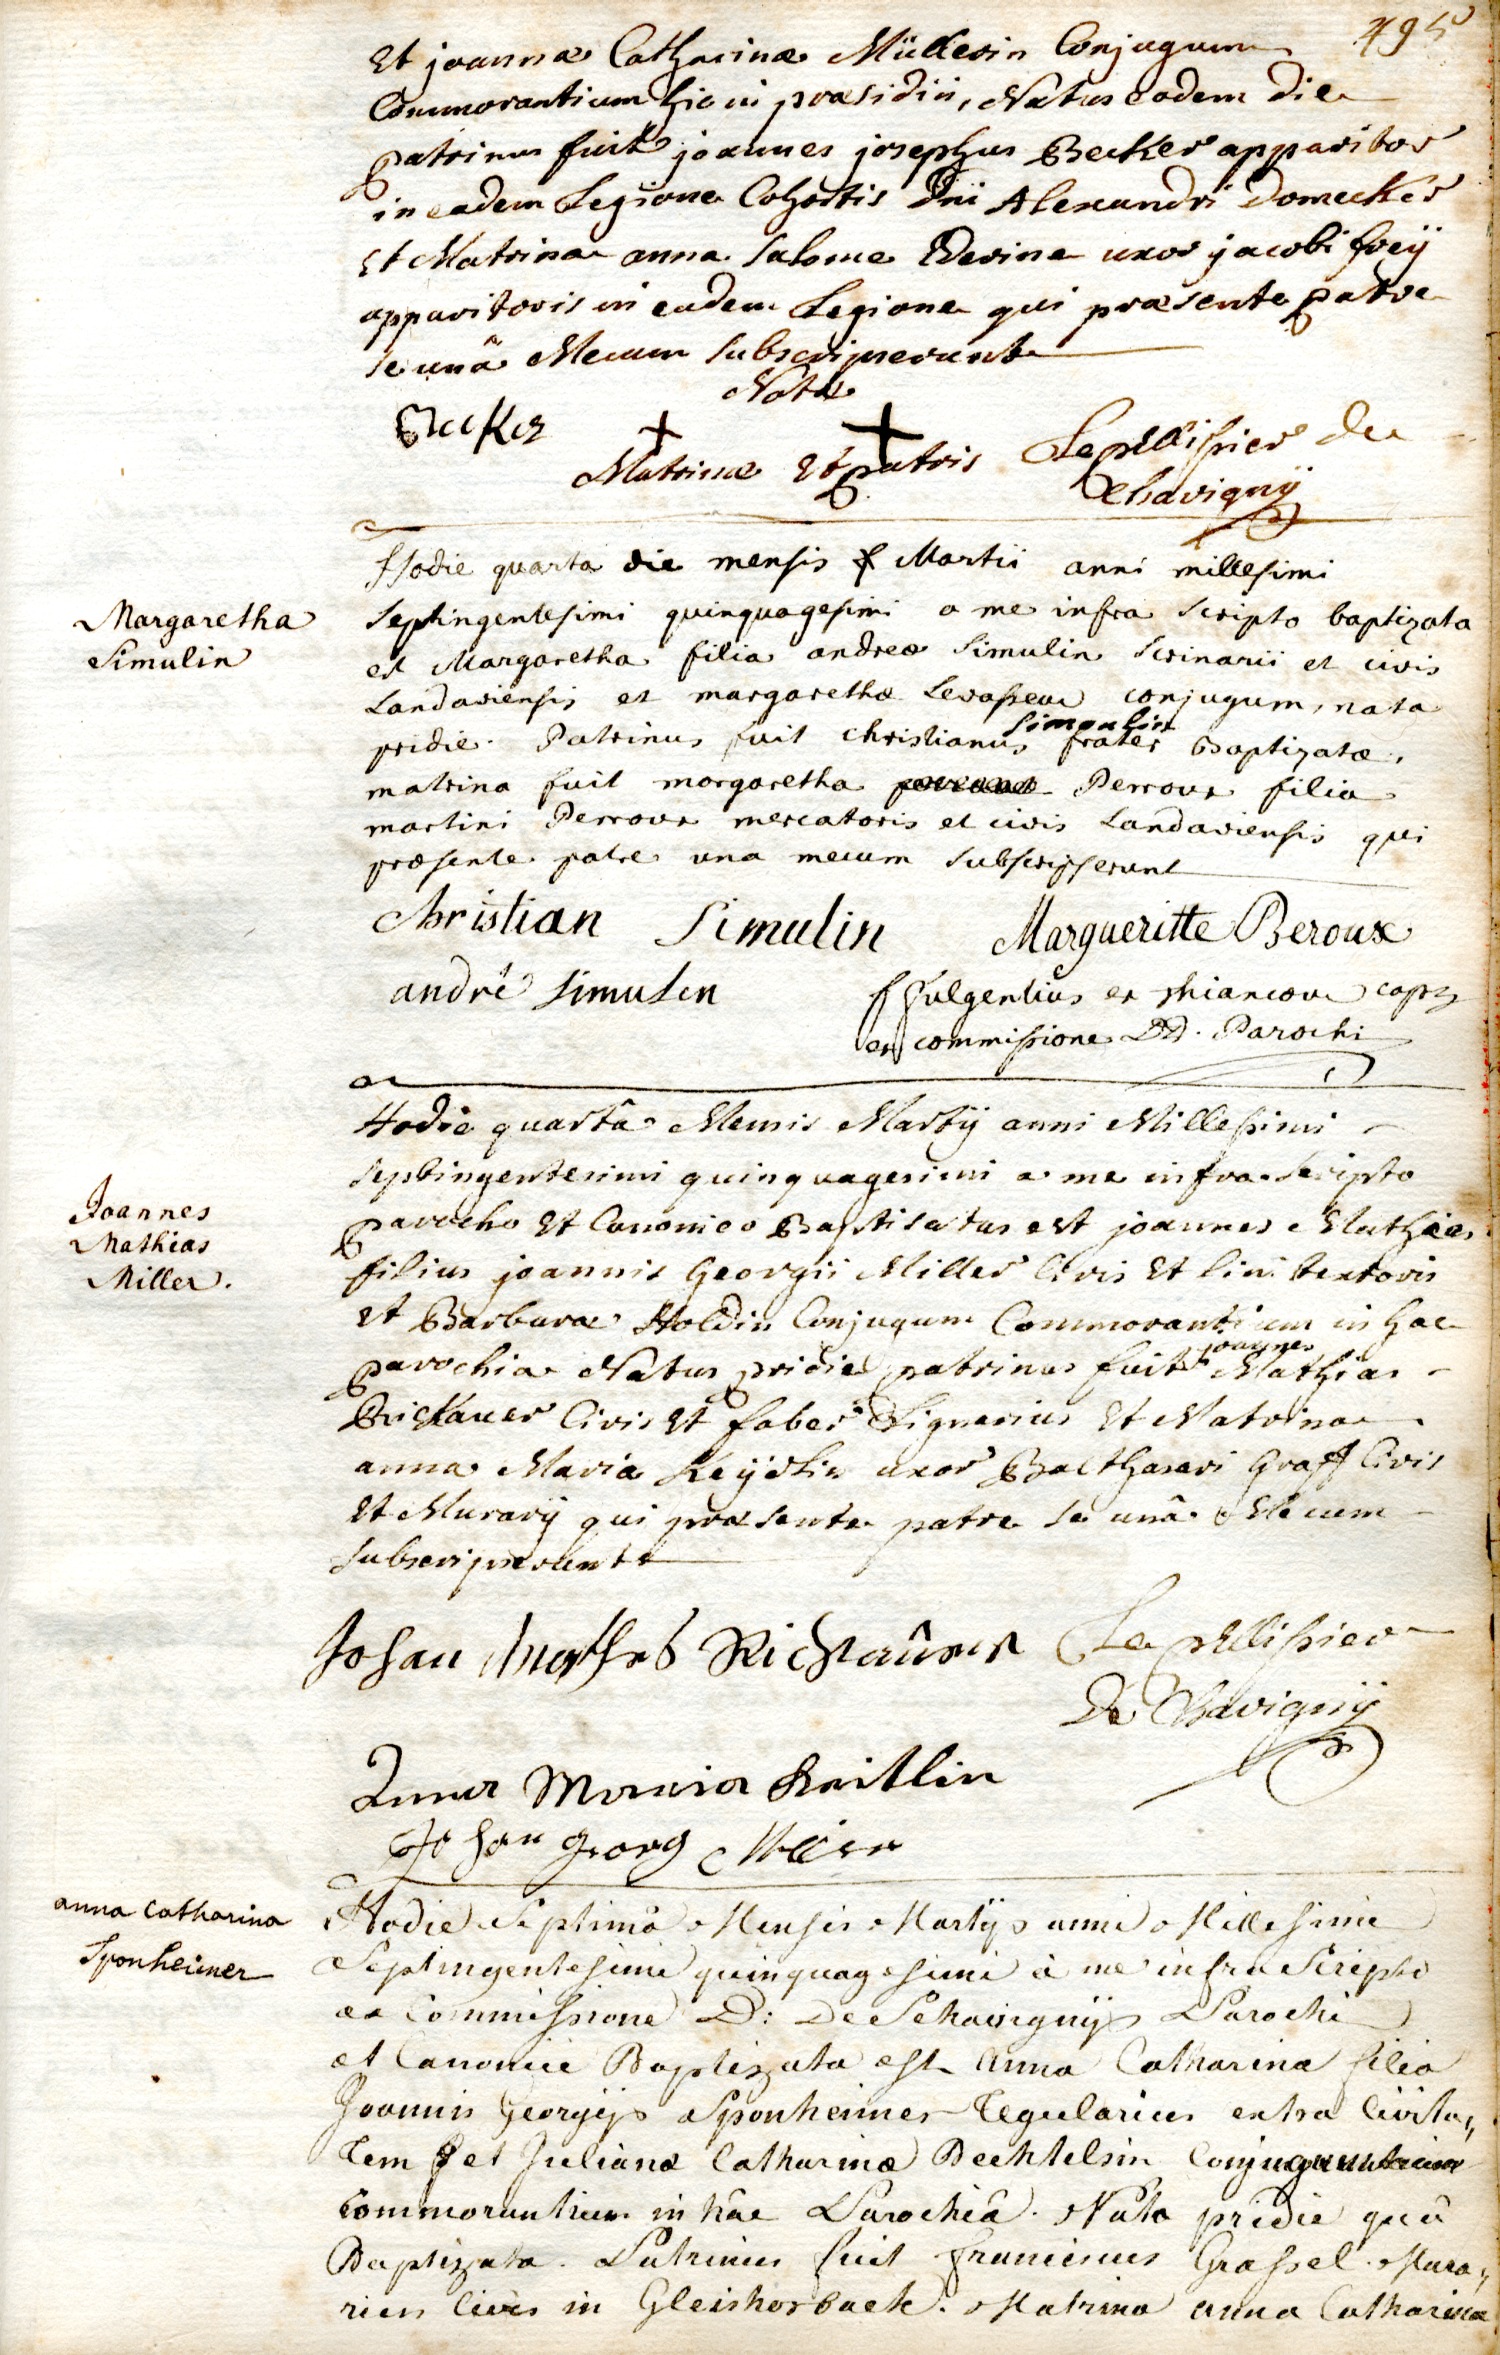 495
Et joannæ Catharinæ Müllerin Conjugum
Commorantium hic in præsidiü, Natus eodem die
patrinus fuit joannes josephus Becker apparitor
in eadem Legione Cohortis Dni Alexandri Domecker
et Matrina anna Salome Werine uxor jacobi freÿ
apparitoris in eadem Legione qui præsente patre
se unâ Mecum subscripserunt
Nota
Becker
Matrinæ et patris
Lepellissier de
Chavignÿ
Margaretha
Simulin
Hodie quarta die mensis Martii anni millesimi
septingentesimi quinquagesimi a me infra scripto baptizata
est Margaretha filia andreæ Simulin scrinarii et civis
Landaviensis et margarethæ Levasseur conjugum, nata
pridie. Patrinus fuit christianus Simoulin frater Baptizatæ,
matrina fuit margaretha Perroux filia
martini Perroux mercatoris et civis Landaviensis qui
præsente patre una mecum subscripserunt
Christian Simulin Margueritte Beroux
andré Simulin
f fulgentius ex
ex commissione DD. Parochi
Joannes
Mathias
Miller.
Hodie quartâ Mensis Martÿ anni Millessimi
septingentesimi quinquagesimi a me infra scripto
parocho et Canonico Baptisatus est joannes Mathias
filius joannis Georgii Miller Civis et lini textoris
et Barbaræ Holdin Conjugum Commorantium in hac
parochia Natus pridie patrinus fuit joannes Mathias
Rickauer Civis et faber Lignarius et Matrina
anna Maria Keÿtlin uxor Balthasari Graff Civis
et Murarÿ qui præsente patre se unâ Mecum
subscripserunt
Johan Mathes Richauer
Le pellissier
De Chavignÿ
Anna Maria Keitlin
Johan georg Miller
anna Catharina
Sponheimer
Hodie Septimâ Mensis Martÿ anni Millesimi
Septingentesimi quinquagesimi à me infra Scripto
ex Commissione D: De Schavignÿ Parochi
et Canonici Baptizata est Anna Catharina filia
Joannis Georgÿ Sponheimer Tegularius extra Civita„
tem et Julianæ Catharinæ Bechtelsin Conjugum
Commorantium in hâc Parochiâ. Nata pridie quâ
Baptizata. Patrinus fuit franciscus Grassel Mura„
rius Civis in Gleishorbach. Matrina anna Catharina